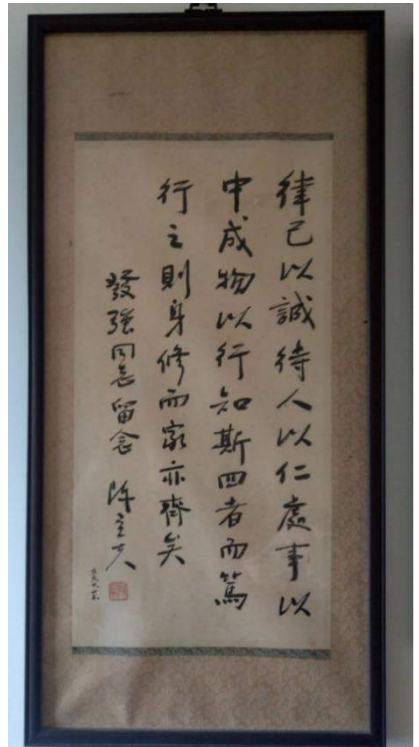 律己以誠待人以仁處事以
中成物以行知斯四者而篤
行之則身修而家亦齊矣
發強同志留念 陳立夫